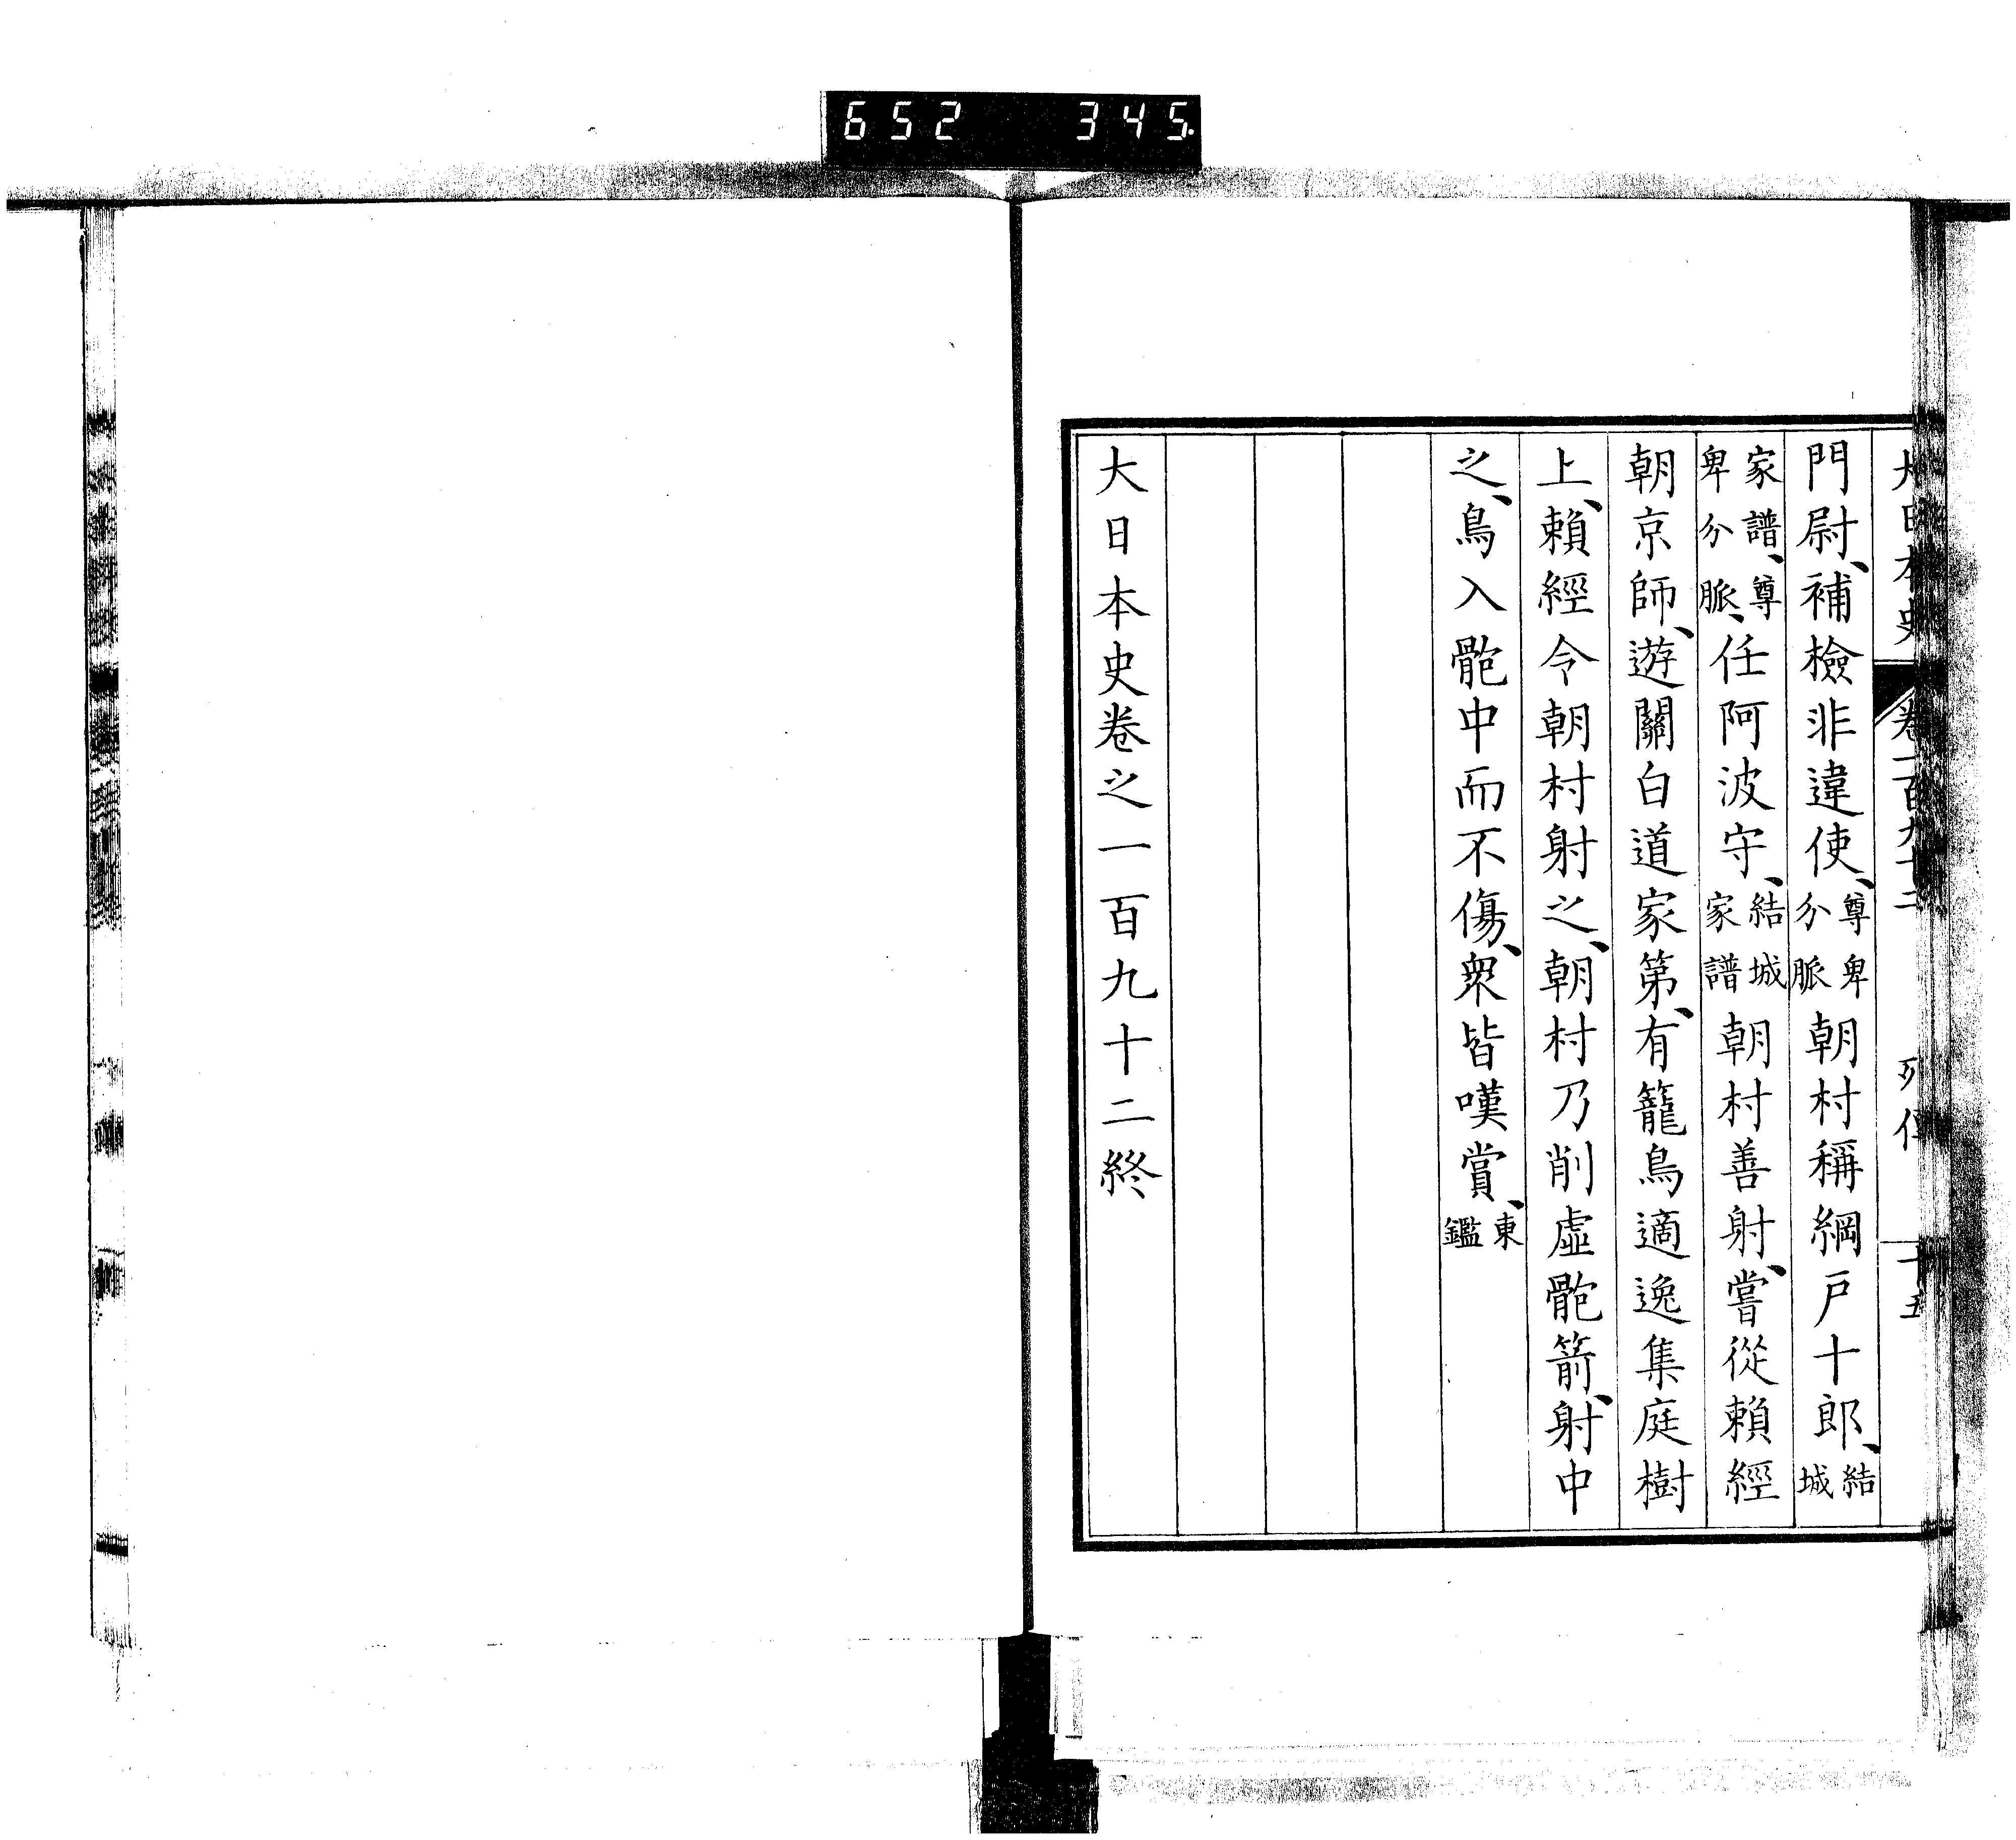 652 345.
大日本史 卷一百九十二 列傳 十五
門尉、補檢非違使、尊卑分脈朝村稱綱戸十郎、結城
家譜、尊卑分脈、任阿波守、結城家譜朝村善射、嘗從賴經
朝京師、遊關白道家第、有籠鳥適逸集庭樹
上、賴經令朝村射之、朝村乃削虛骲箭、射中
之、鳥入骲中而不傷、衆皆嘆賞、東鑑
大日本史卷之一百九十二終